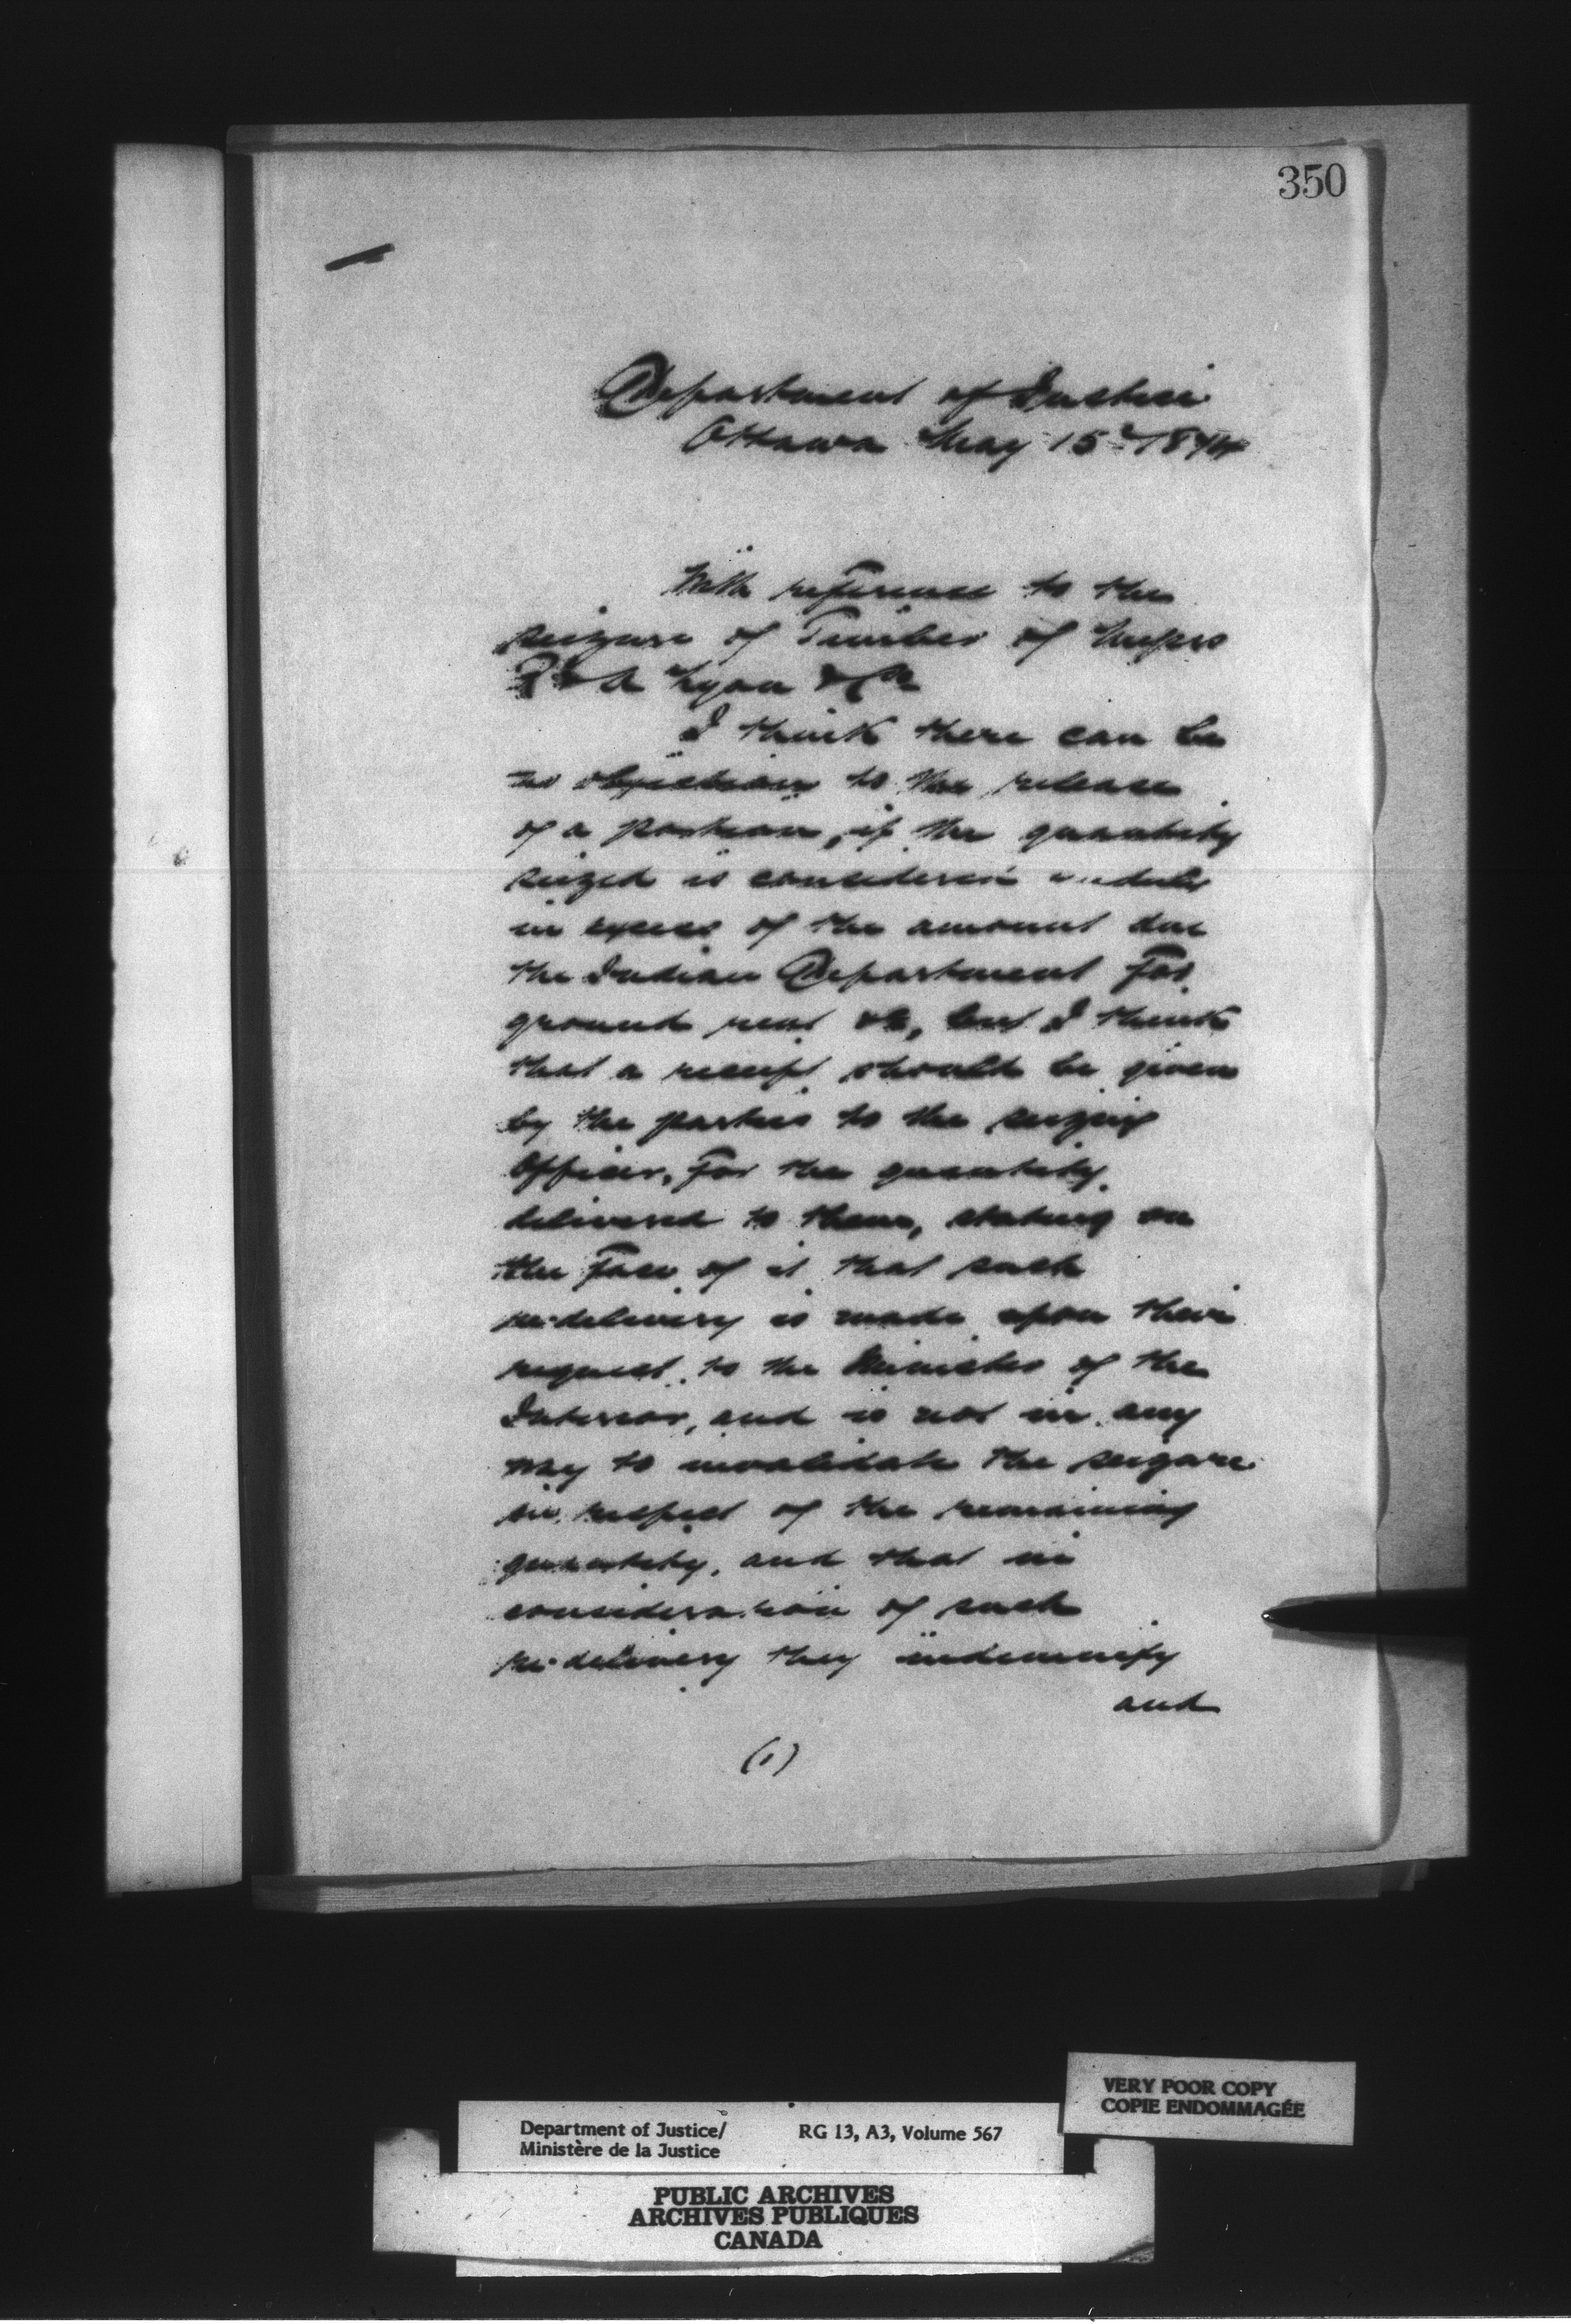 350
Department of Justice
Ottawa May 15th 1874
With reference to the
seizure of Timber of Messrs
R & A Lyon & Co
I think there can be
no objection to the release
of a portion, if the quantity
seized is considered unduly
in excess of the amount due
the Indian Department for
ground rent &c, but I think
that a receipt should be given
by the parties to the seizing
Officer, for the quantity
delivered to them, stating on
the face of it that such
re-delivery is made upon their
request to the Minister of the
Interior, and is not in any
way to invalidate the seizure
in respect of the remaining
quantity, and that in
consideration of such
re-delivery they indemnify
and
(1)
VERY POOR COPY
COPIE ENDOMMAGÉE
Department of Justice/ RG 13, A3, Volume 567
Ministère de la Justice
PUBLIC ARCHIVES
ARCHIVES PUBLIQUES
CANADA